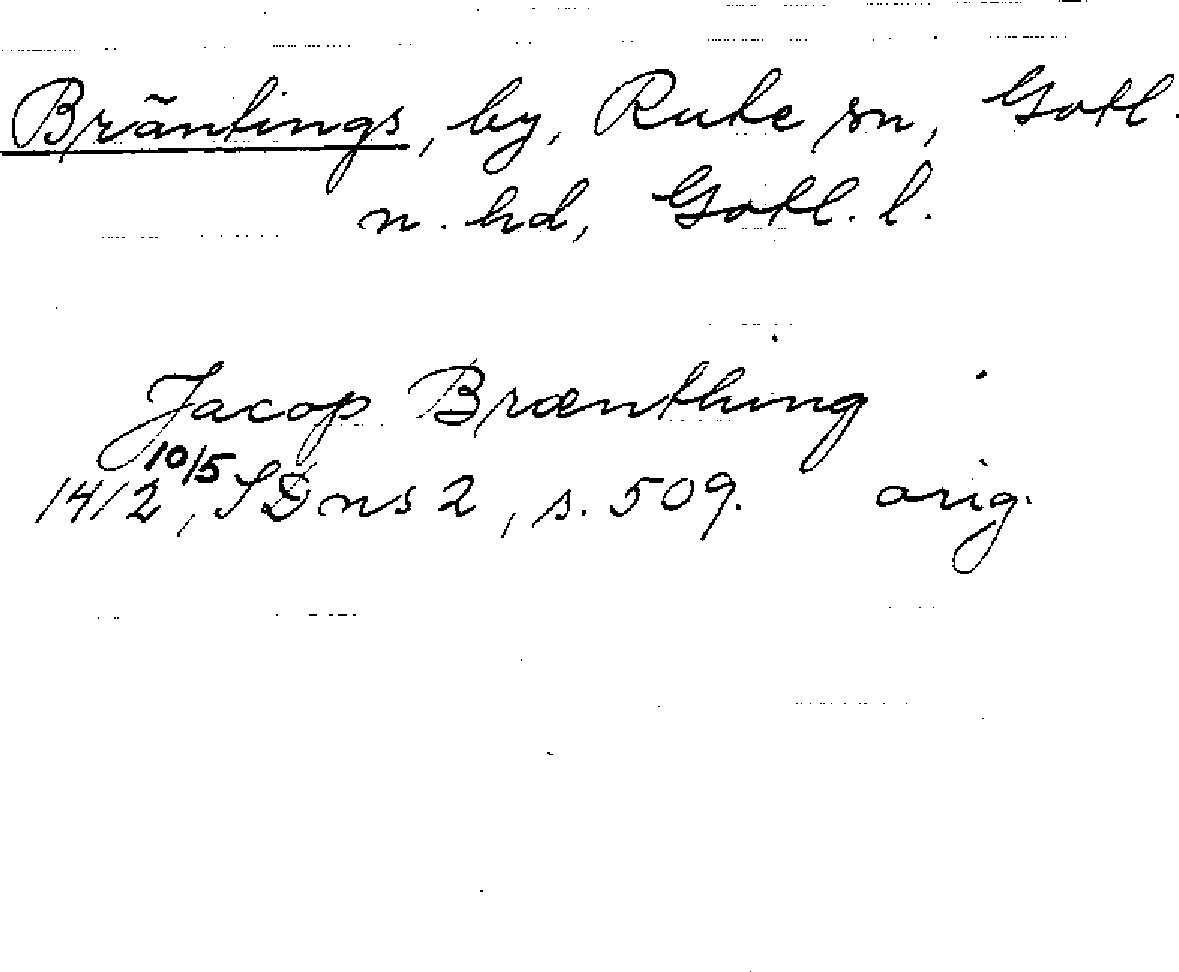 Bräntings, by, Rute sn, Gotl.
n. hd, Gotl. l.
Jacop Brænthing
1412 10/5, SD ns 2, s. 509. orig.